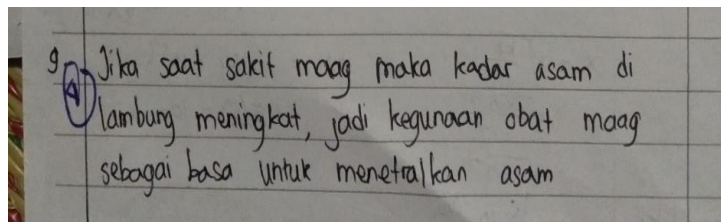 9 A) Jika saat sakit maag maka kadar asam di
lambung meningkat, jadi kegunaan obat maag
sebagai basa untuk menetralkan asam